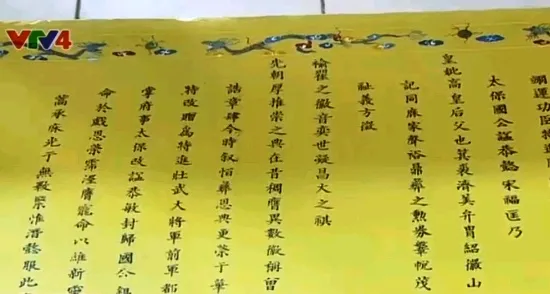 VTV4
翊運功臣特進
太保國公謚恭懿宋福匡乃
皇妣高皇后父也箕裘濟美介胄紹徽山
記同麻家聲裕鼎彝之勲券鞶帨茂
祉義方徵
褕翟之徽音奕世凝昌大之祺
先朝厚推崇之典在昔稠膺異數徽稱留
誥章肆今時叙恪彝恩典更榮于華
特改贈爲特進壯武大將軍前軍都
掌府事太保改謚恭敏封歸國公錫
命於戲恩榮霈渥膺寵命以維新靈
蒿承庥光于無斁梁惟潛發服此